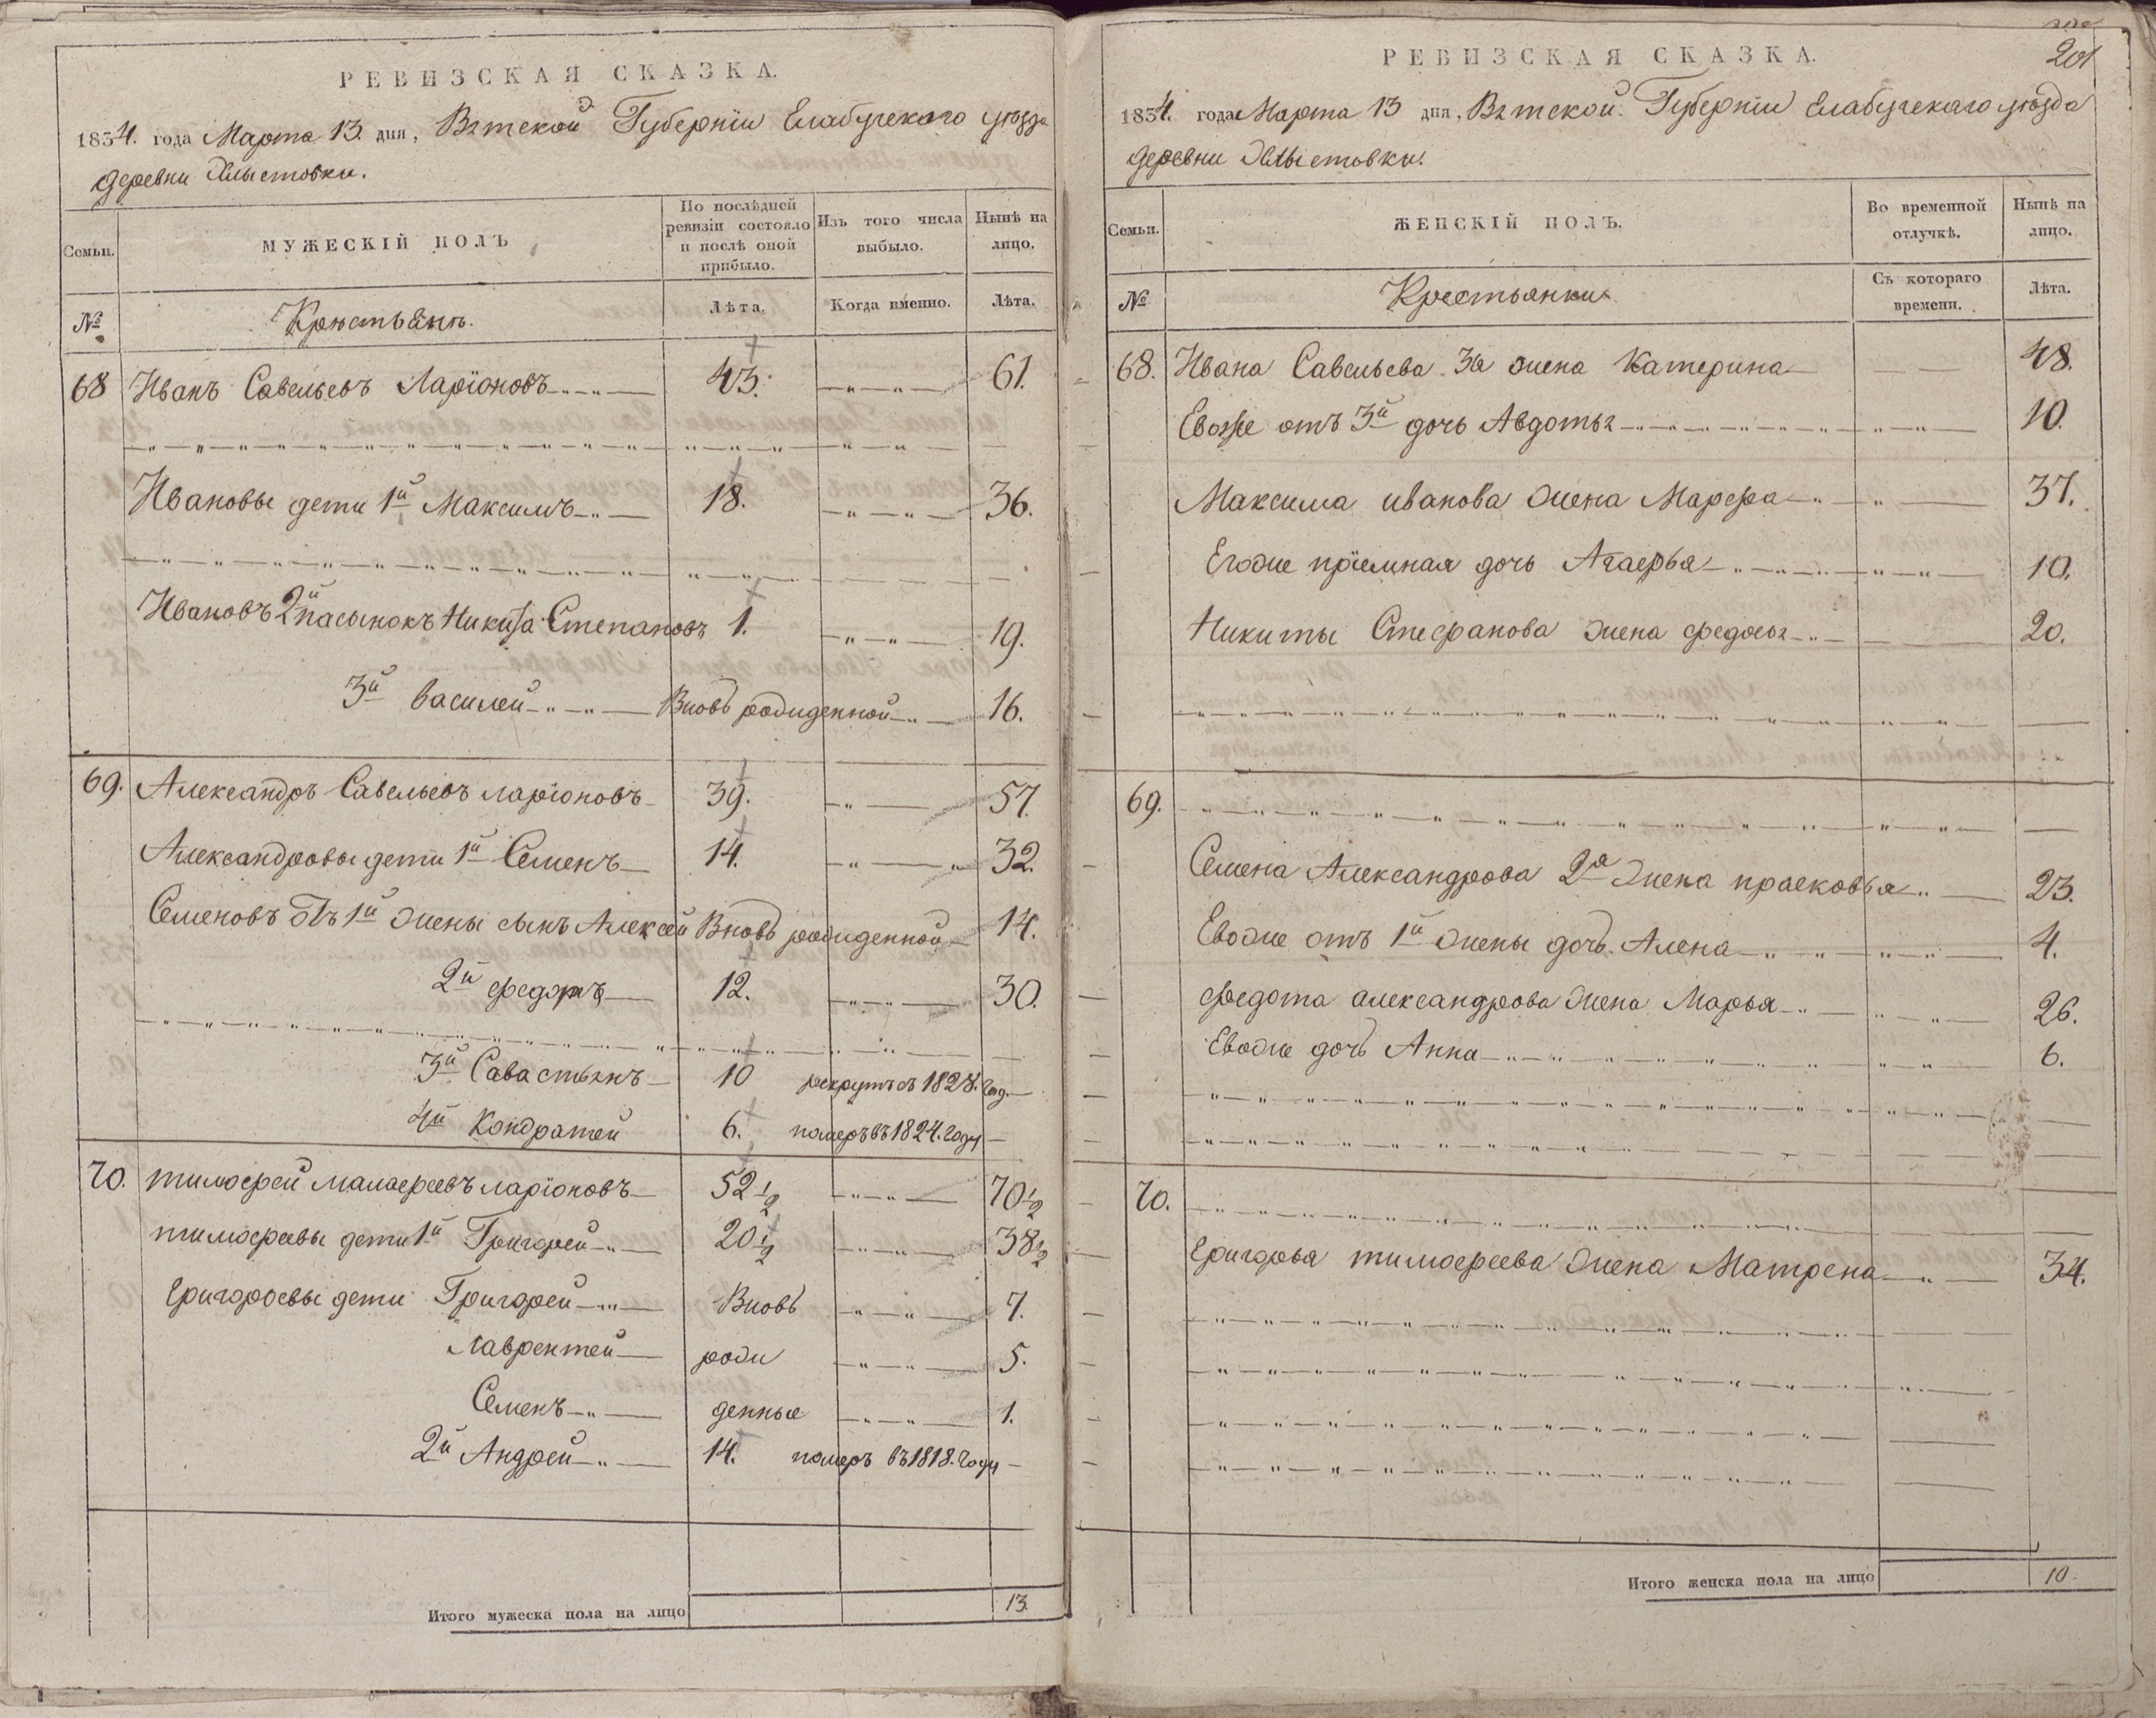 РЕВИЗСКАЯ СКАЗКА.
1834. года Марта 13. дня, Вятской Губерніи Елабугскаго уезда
деревни Хлыстовки.
Семьи.
МУЖЕСКІЙ ПОЛЪ
По послѣдней ревизіи состояло и послѣ оной прибыло.
Изъ того числа выбыло.
Нынѣ на лицо.
№
Крестьянъ.
Лѣта.
Когда именно.
Лѣта.
68 Иванъ Савельевъ Ларіоновъ 43. 61.
Ивановы дети 1й Максимъ 18. 36.
Ивановъ 2й пасынокъ Никита Степановъ 1. 19.
3й Василей Вновь рожденной 16.
69. Александръ Савельевъ Ларіоновъ 39. 57.
Александровы дети 1й Семенъ 14. 32.
Семеновъ отъ 1й жены сынъ Алексей Вновь рожденной 14.
2й федотъ 12. 30.
3й Савастьянъ 10 рекрутъ съ 1828. год.
4й Кондратей 6. померъ въ 1824. году
70. тимофей малафеевъ ларіоновъ 52 1/2 70 1/2
тимофеевы дети 1й Григорей 20 1/2 38 1/2
Григоровы дети Григорей Вновь 7.
Лаврентей рож 5.
Семенъ денные 1.
2й Андрей 14. померъ въ 1818. году
Итого мужеска пола на лицо 13.
201
РЕВИЗСКАЯ СКАЗКА.
1834. года Марта 13 дня, Вятской Губерніи Елабугскаго уезда
деревни Хлыстовки.
Семьи.
ЖЕНСКІЙ ПОЛЪ.
Во временной отлучкѣ.
Нынѣ на лицо.
№
Крестьянки
Съ котораго времени.
Лѣта.
68. Ивана Савельева 3я жена Катерина 48.
Евоже отъ 3й дочь Авдотья 10.
Максима иванова жена Марфа 37.
Егоже пріемная дочь Агафья 10.
Никиты Стефанова жена федосья 20.
69.
Семена Александрова 2я жена прасковья 23.
Евоже отъ 1й жены дочь Алена 4.
федота александрова жена Марья 26.
Евоже дочь Анна 6.
70.
Григорья тимофеева жена Матрена 34.
Итого женска пола на лицо 10.